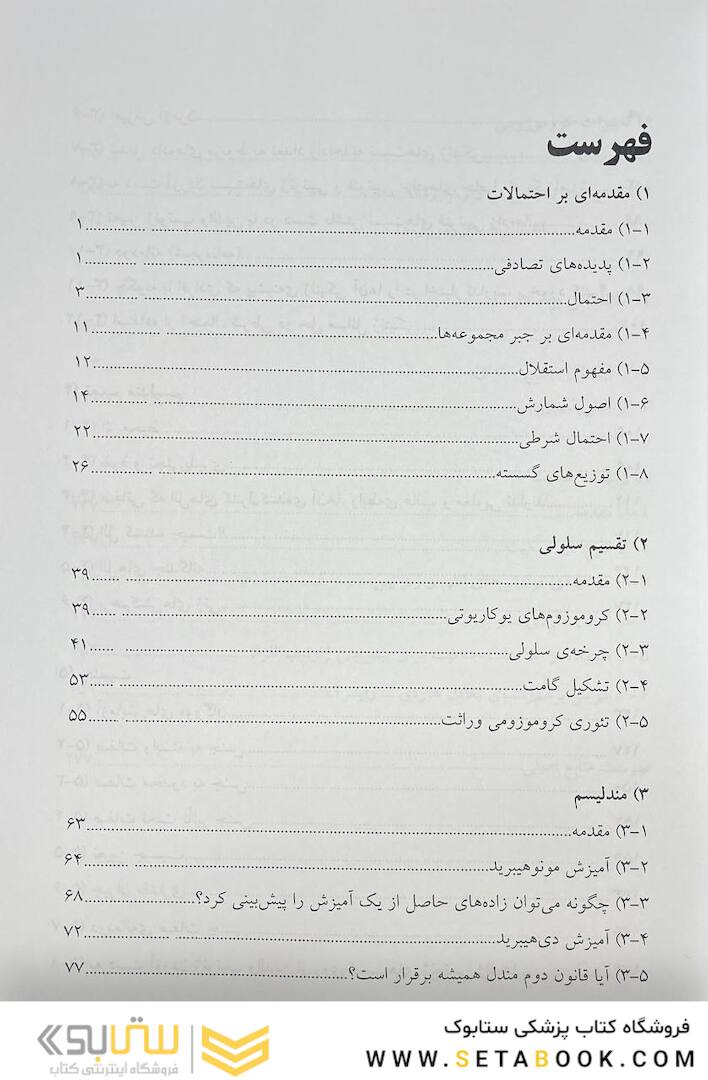 فهرست
۱) مقدمه‌ای بر احتمالات
۱-۱) مقدمه ۱
۱-۲) پدیده‌های تصادفی ۱
۱-۳) احتمال ۳
۱-۴) مقدمه‌ای بر جبر مجموعه‌ها ۱۱
۱-۵) مفهوم استقلال ۱۲
۱-۶) اصول شمارش ۱۴
۱-۷) احتمال شرطی ۲۲
۱-۸) توزیع‌های گسسته ۲۶
۲) تقسیم سلولی
۲-۱) مقدمه ۳۹
۲-۲) کروموزوم‌های یوکاریوتی ۳۹
۲-۳) چرخه‌ی سلولی ۴۱
۲-۴) تشکیل گامت ۵۳
۲-۵) تئوری کروموزومی وراثت ۵۵
۳) مندلیسم
۳-۱) مقدمه ۶۳
۳-۲) آمیزش مونوهیبرید ۶۴
۳-۳) چگونه می‌توان زاده‌های حاصل از یک آمیزش را پیش‌بینی کرد؟ ۶۸
۳-۴) آمیزش دی‌هیبرید ۷۲
۳-۵) آیا قانون دوم مندل همیشه برقرار است؟ ۷۷
فروشگاه کتاب پزشکی ستابوک
WWW.SETABOOK.COM
ستابوک
فروشگاه اینترنتی کتاب